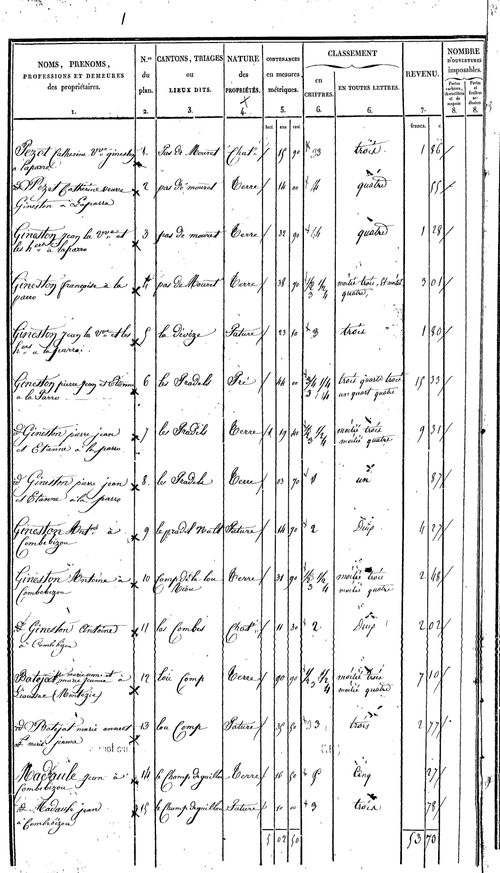 1
NOMS, PRENOMS,
PROFESSIONS ET DEMEURES
des propriétaires.
1.
N.os
du
plan.
2.
CANTONS, TRIAGES
ou
LIEUX DITS.
3.
NATURE
des
PROPRIÉTÉS.
4.
CONTENANCES
en mesures
métriques.
5.
CLASSEMENT
en
CHIFFRES.
6.
EN TOUTES LETTRES.
6.
REVENU.
7.
NOMBRE
D'OUVERTURES
imposables.
8.
8.
hect. ares cent.
francs. c.
Pezet Catherine Vve gineston 1. Pas de Mouret Chat. 15 90 3 trois 1 86
laparro
d. Pezet Catherine veuve 2 pas de mouret Terre 14 00 4 quatre 55
Gineston à Laparra
Gineston jean la Vve et 3 pas de mouret Terre 32 90 4 quatre 1 28
les hers à laparro
Gineston françoise à la 4 pas de Mouret Terre 38 90 1/2 1/2 moitié trois, et moitié 3 01
parro 3 4 quatre,
Gineston jean la Vve et les 5 la Devèze Pature 23 10 3 trois 1 80
hers à laparro.
Gineston pierre jean et Etienne 6 les Pradels Pré 44 00 3/4 1/4 trois quart trois 15 33
à la Parro 3 4 un quart quatre
d. Gineston pierre jean 7 les Pradels Terre 1 19 40 1/2 1/2 moitié trois 9 31
et Etienne à la parro 3 4 moitié quatre
d. Gineston pierre jean 8. les Pradels Terre 03 70 1 un 87
et Etienne à la parro
Gineston Ant. à 9 le pradel Pature 14 70 2 Deux 4 27
Combebizou
Gineston Antoine à 10 Terre 31 90 1/2 1/2 moitié trois 2 48
Combebizou 3 4 moitié quatre
d. Gineston Antoine 11 las Combes Chat. 11 30 2 Deux 2 02
à Combebizou
marie jeanne à 12 lou Comp Terre 90 90 1/2 1/2 moitié trois 7 10
3 4 moitié quatre
d. marie 13 lou Comp Pature 35 50 3 trois 2 77
et marie jeanne
Madaule jean à 14 le Champ de guillou Terre 16 50 5 Cinq 27
Combebizou
d. Madaule jean 15 le Champ de guillou Pature 10 00 3 trois 78
à Combebizou
5 02 50 53 70